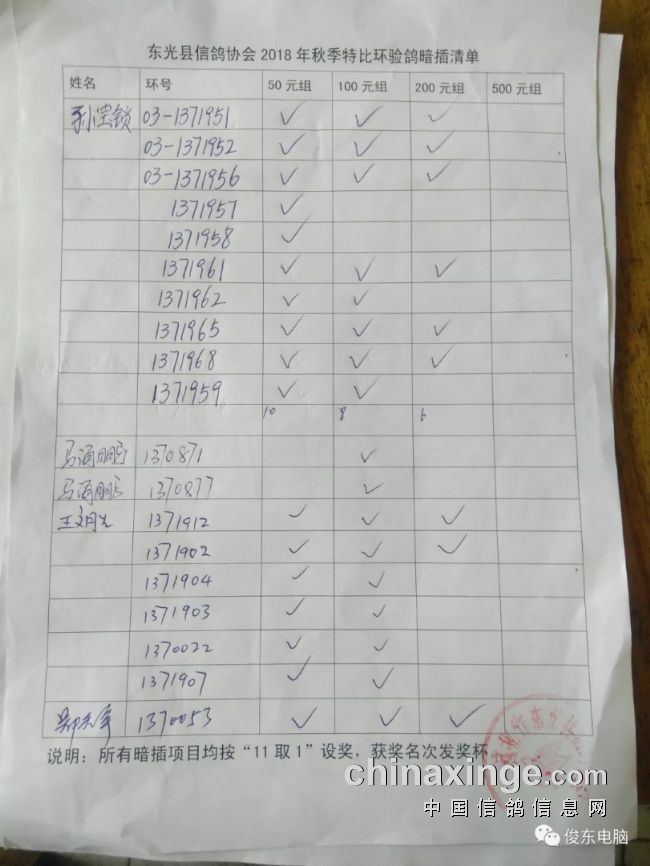 东光县信鸽协会 2018 年秋季特比环验鸽暗插清单
姓名 环号 50 元组 100 元组 200 元组 500 元组
03-1371951 ✓ ✓ ✓
03-1371952 ✓ ✓ ✓
03-1371956 ✓ ✓ ✓
1371957 ✓
1371958 ✓
1371961 ✓ ✓ ✓
1371962 ✓ ✓
1371965 ✓ ✓ ✓
1371968 ✓ ✓ ✓
1371959 ✓ ✓
10 8 6
马海鹏 1370871 ✓
马海鹏 1370877 ✓
1371912 ✓ ✓ ✓
1371902 ✓ ✓ ✓
1371904 ✓ ✓
1371903 ✓ ✓
1370022 ✓ ✓
1371907 ✓ ✓
1370053 ✓ ✓ ✓
说明：所有暗插项目均按“11 取 1”设奖，获奖名次发奖杯
chinaxinge.com
中国信鸽信息网
俊东电脑